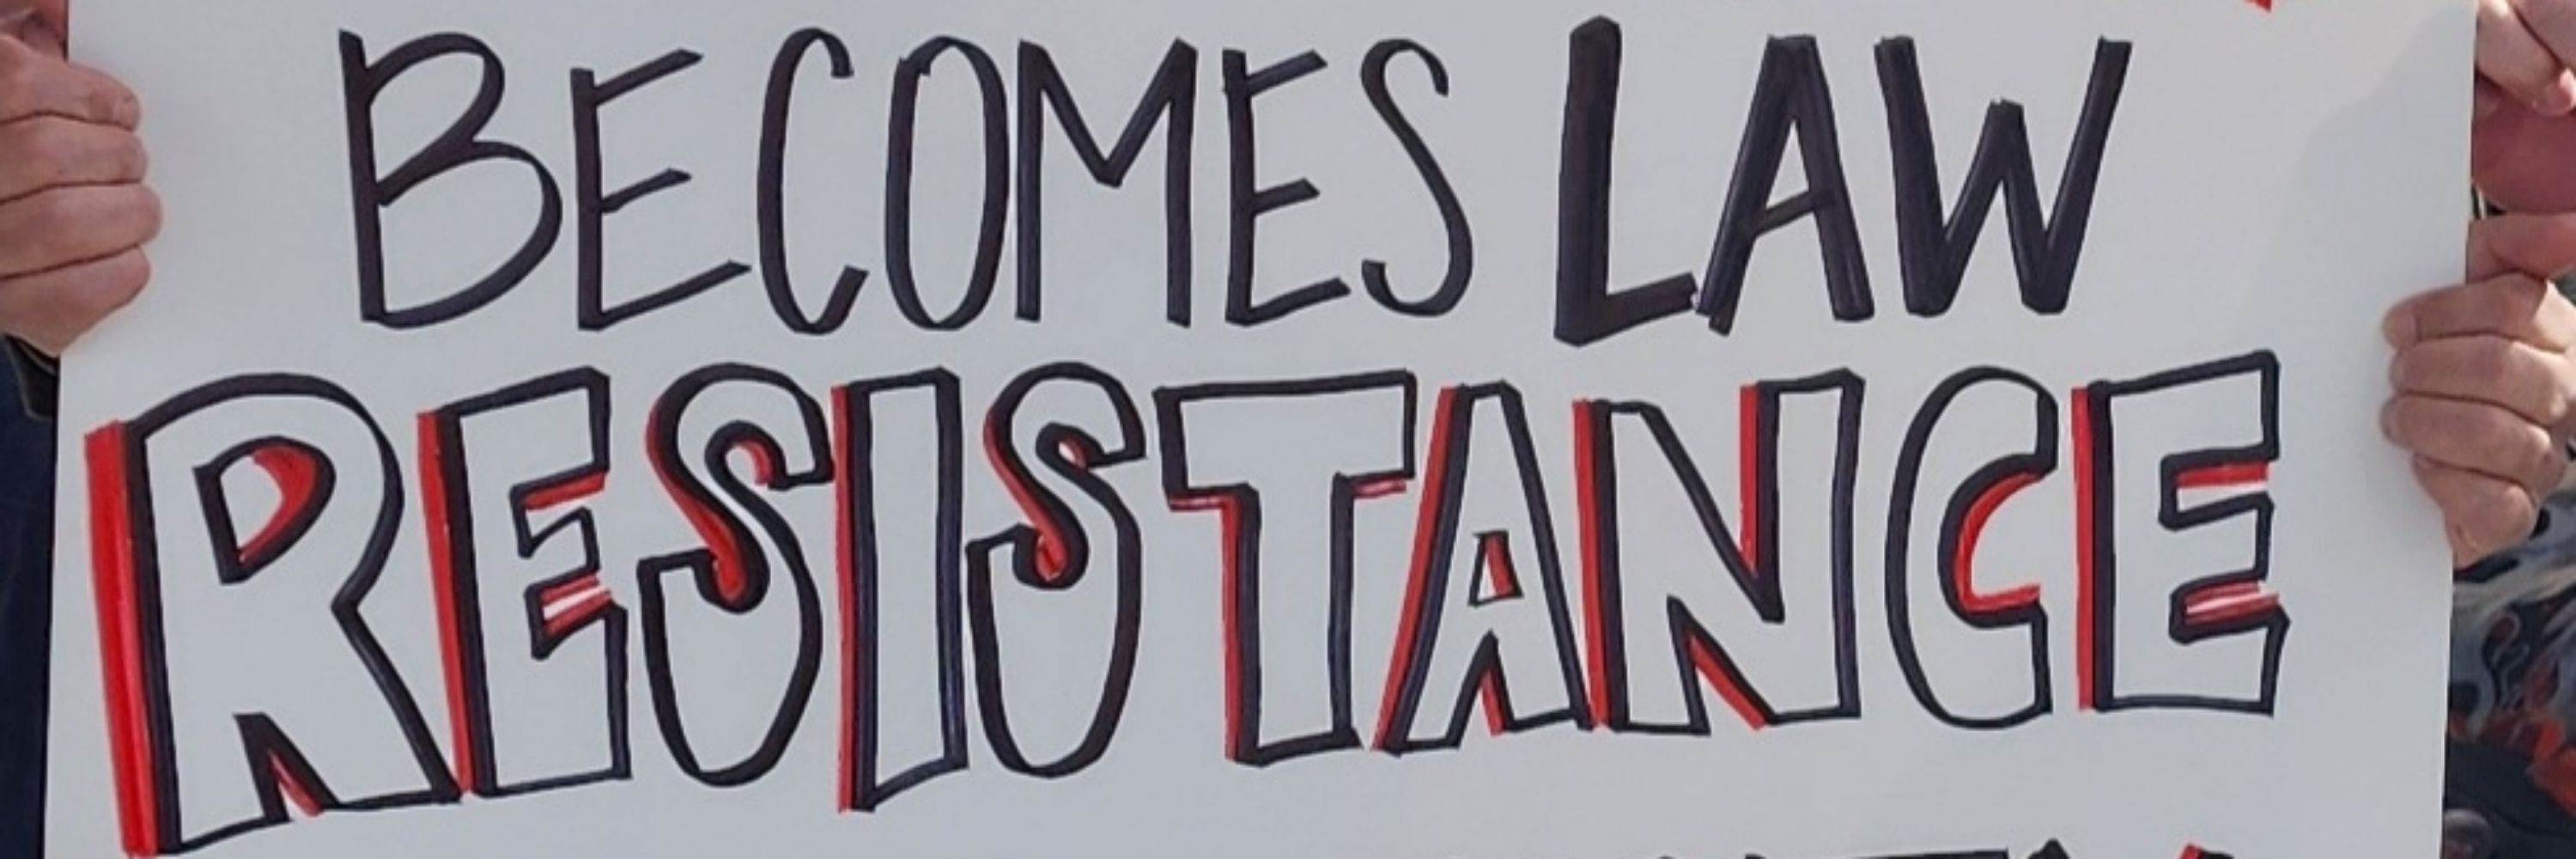 BECOMES LAW
RESISTANCE